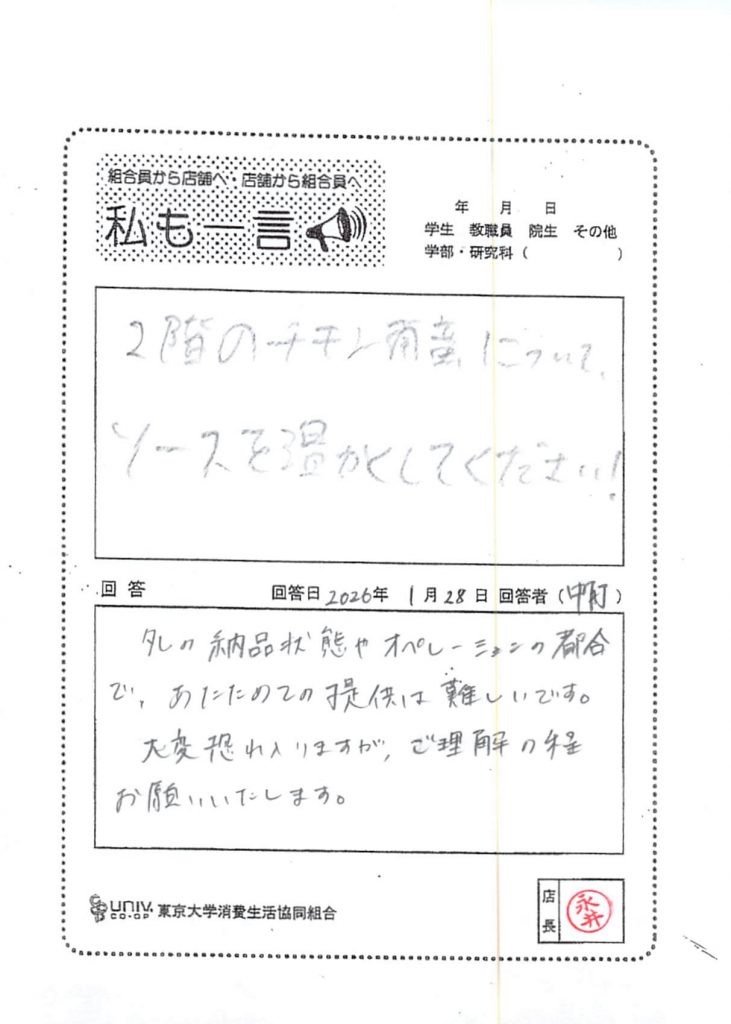 組合員から店舗へ・店舗から組合員へ
私も一言
年 月 日
学生 教職員 院生 その他
学部・研究科( )
2階のチキン南蛮について、
ソースを温かくしてください!
回答 回答日 2026年 1月28日 回答者(中町)
タレの納品状態やオペレーションの都合
で、あたためての提供は難しいです。
大変恐れ入りますが、ご理解の程
お願いいたします。
UNIV. CO-OP 東京大学消費生活協同組合
店長 永井